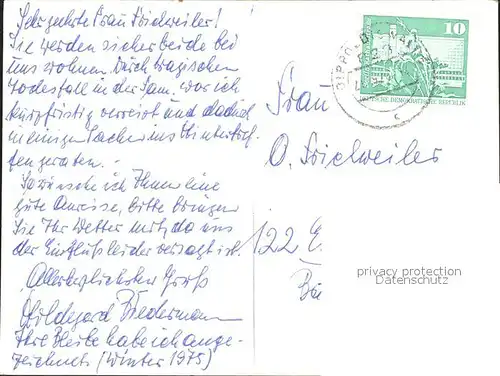 Sehr geehrte Frau Srichweiler!
Sie werden sicher beide bei
uns wohnen. Durch tragischen
Todesfall in der Fam. war ich
kurzfristig verreist und dadurch
in einigen Sachen ins Hintertref-
fen geraten. -
So wünsche ich Ihnen eine
gute Anreise, bitte bringen
Sie Ihr Wetter mit, da uns
der Einfluß leider versagt ist.
Allerherzlichsten Gruß
Hildegard Biedermann
Ihre Bleibe habe ich ange-
zeichnet (Winter 1975)
10
DEUTSCHE DEMOKRATISCHE REPUBLIK
Frau
O.
122 E.
privacy protection
Datenschutz